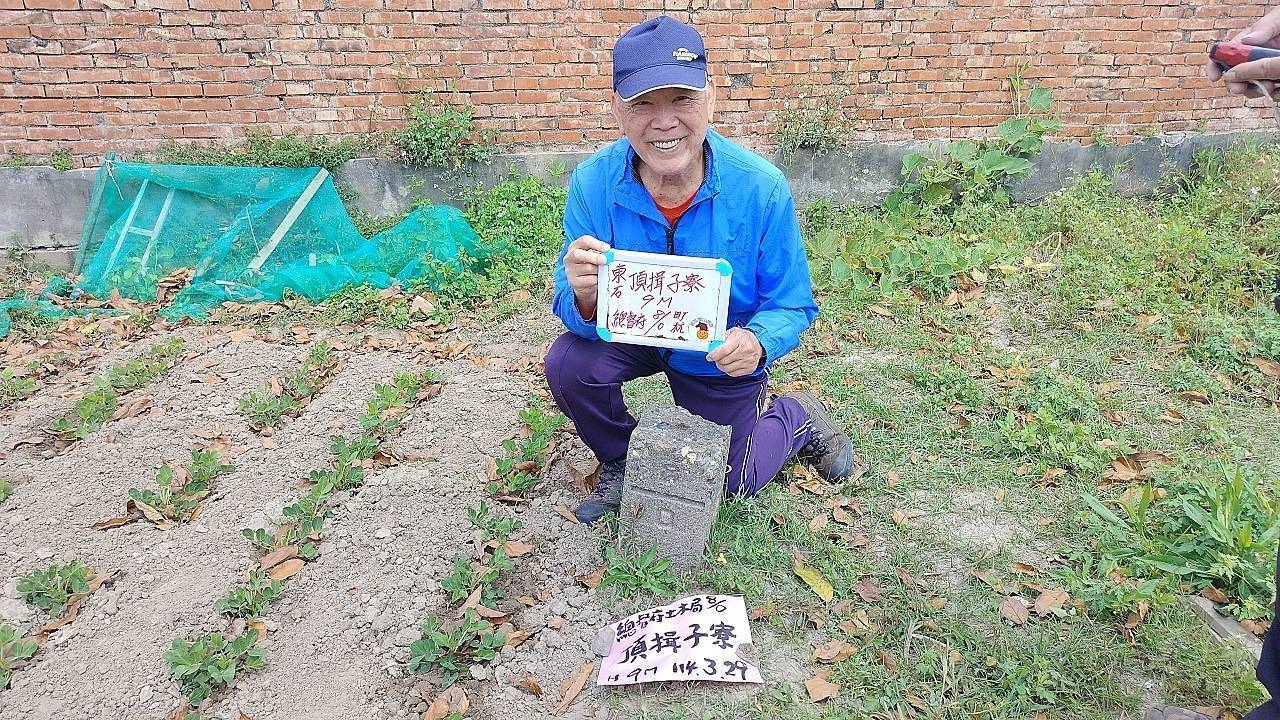 東石 頂揖子寮
9M
總督府 8/0 町杭
總督府土木局 8/0
頂揖子寮
H 9M 114.3.29